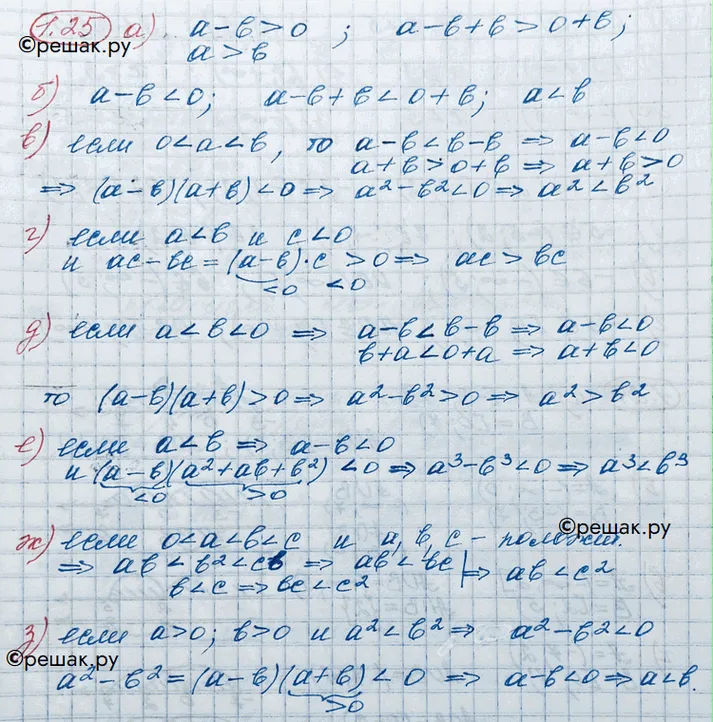 1.25 а). a-b>0 ; a-b+b>0+b;
©решак.ру
a>b
б) a-b<0; a-b+b<0+b; a<b
в) если 0<a<b, то a-b<b-b ⇒ a-b<0
a+b>0+b ⇒ a+b>0
⇒ (a-b)(a+b)<0 ⇒ a²-b²<0 ⇒ a²<b²
г) если a<b и c<0
и ac-bc=(a-b)·c>0 ⇒ ac>bc
<0 <0
д) если a<b<0 ⇒ a-b<b-b ⇒ a-b<0
b+a<0+a ⇒ a+b<0
то (a-b)(a+b)>0 ⇒ a²-b²>0 ⇒ a²>b²
е) если a<b ⇒ a-b<0
и (a-b)(a²+ab+b²)<0 ⇒ a³-b³<0 ⇒ a³<b³
<0 >0
©решак.ру
ж) если 0<a<b<c и a, b, c - полож.
⇒ ab<b²<cb ⇒ ab<bc | ⇒ ab<c²
b<c ⇒ bc<c²
з) если a>0; b>0 и a²<b² ⇒ a²-b²<0
©решак.ру
a²-b²=(a-b)(a+b)<0 ⇒ a-b<0 ⇒ a<b.
>0